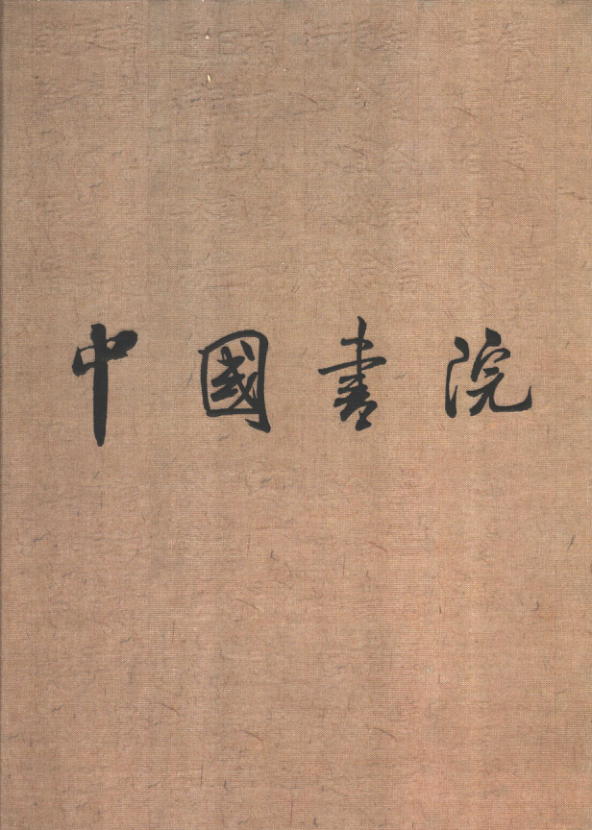 中國書院